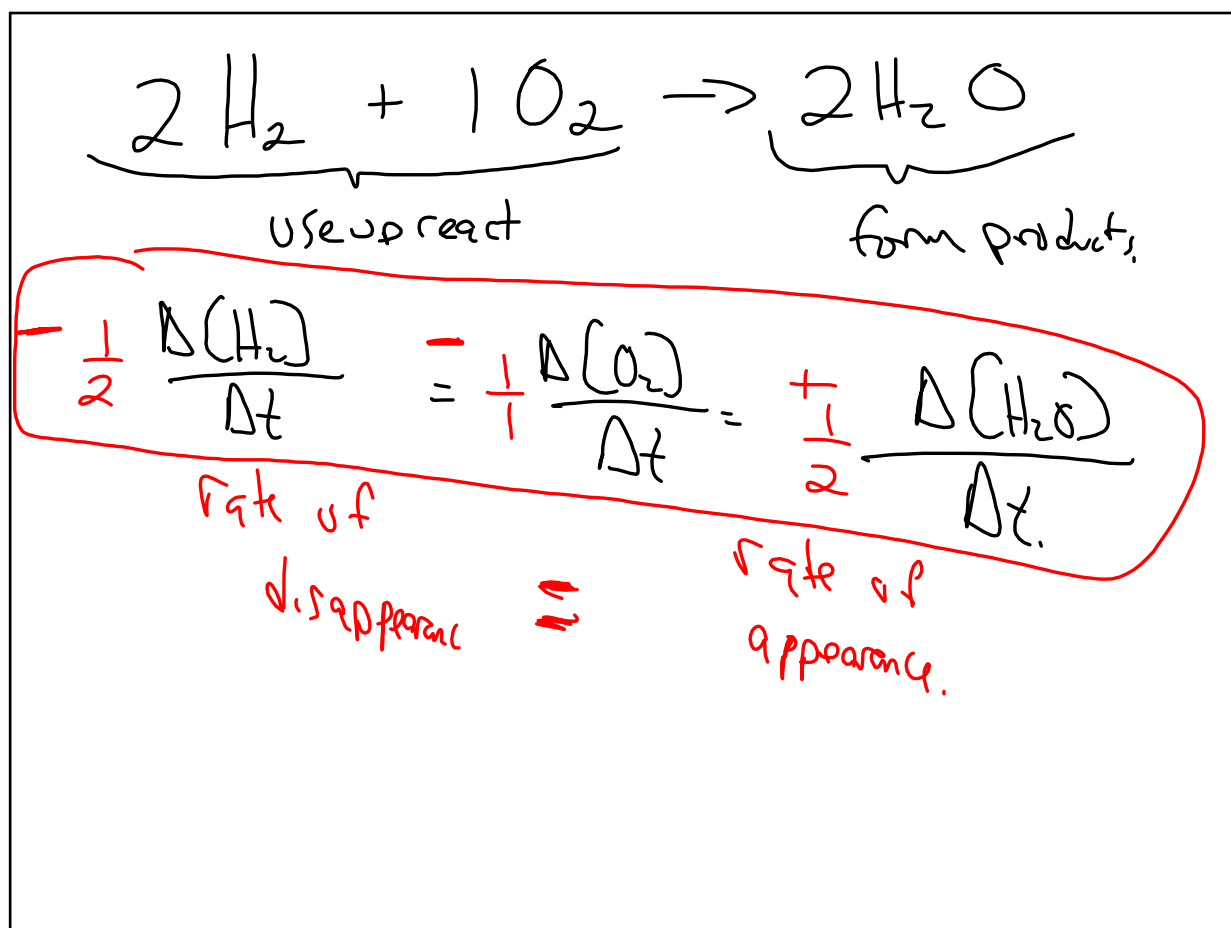 2 H₂ + 1 O₂ → 2 H₂ O
use up react form products.
- 1/2 Δ[H₂]/Δt = - 1/1 Δ[O₂]/Δt = + 1/2 Δ[H₂O]/Δt.
rate of disappearanc = rate of appearance.